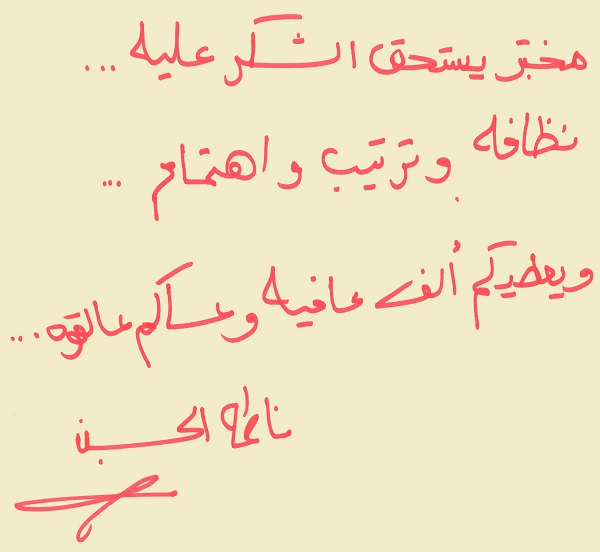 مختبر يستحق الشكر عليه ...
نظافه وترتيب واهتمام ...
ويعطيكم ألف عافيه وعساكم عالقوه ...
الحسين